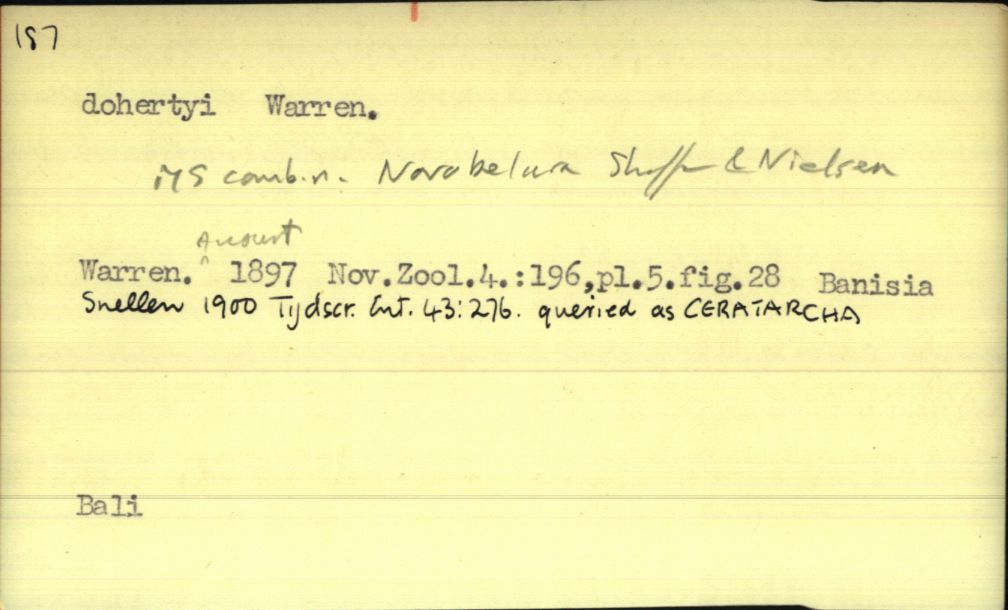 187
dohertyi Warren.
MS combin. Novobelura Shaffer & Nielsen
August
Warren. ^ 1897 Nov.Zool.4.:196,pl.5.fig.28 Banisia
Snellen 1900 Tijdscr. Ent. 43:276. queried as CERATARCHA
Bali